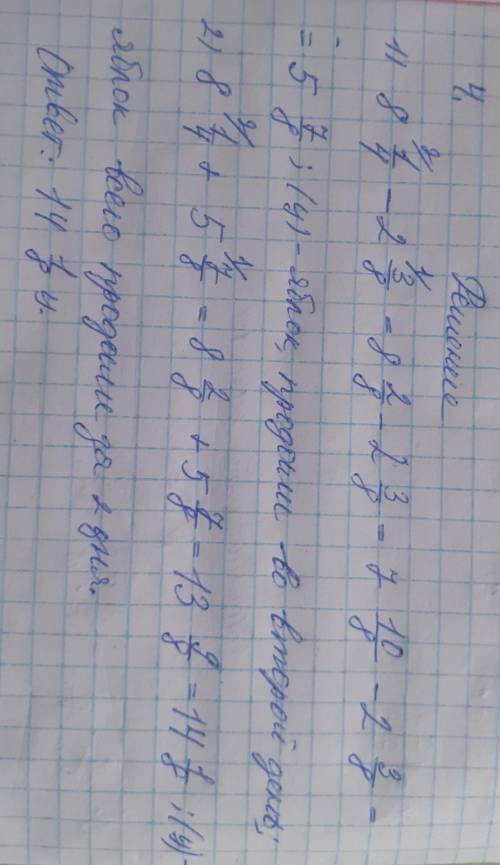 4.
Решение
1) 8 1/4 - 2 3/8 = 8 2/8 - 2 3/8 = 7 10/8 - 2 3/8 =
= 5 7/8; (ц) - яблок, продали во второй день;
2) 8 1/4 + 5 7/8 = 8 2/8 + 5 7/8 = 13 9/8 = 14 1/8; (ц) -
яблок всего продали за 2 дня.
Ответ: 14 1/8 ц.